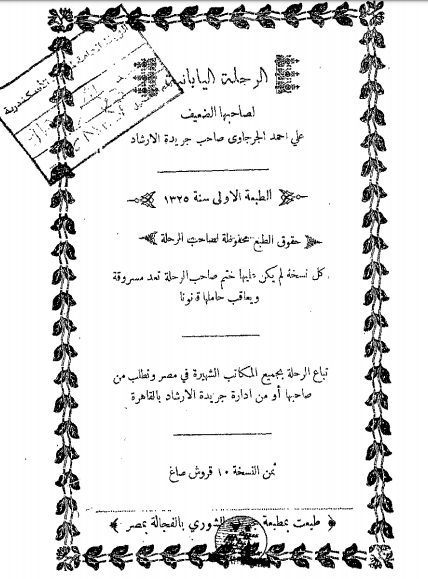 الرحلة اليابانية
لصاحبها الضعيف
علي احمد الجرجاوى صاحب جريدة الارشاد
الطبعة الاولى سنة ١٣٢٥
حقوق الطبع محفوظة لصاحب الرحلة
كل نسخة لم يكن عليها ختم صاحب الرحلة تعد مسروقة
ويعاقب حاملها قانونا
تباع الرحلة بجميع المكاتب الشهيرة في مصر وتطلب من
صاحبها أو من ادارة جريدة الارشاد بالقاهرة
ثمن النسخة ١٠ قروش صاغ
طبعت بمطبعة الشورى بالفجالة بمصر
الاسكندرية